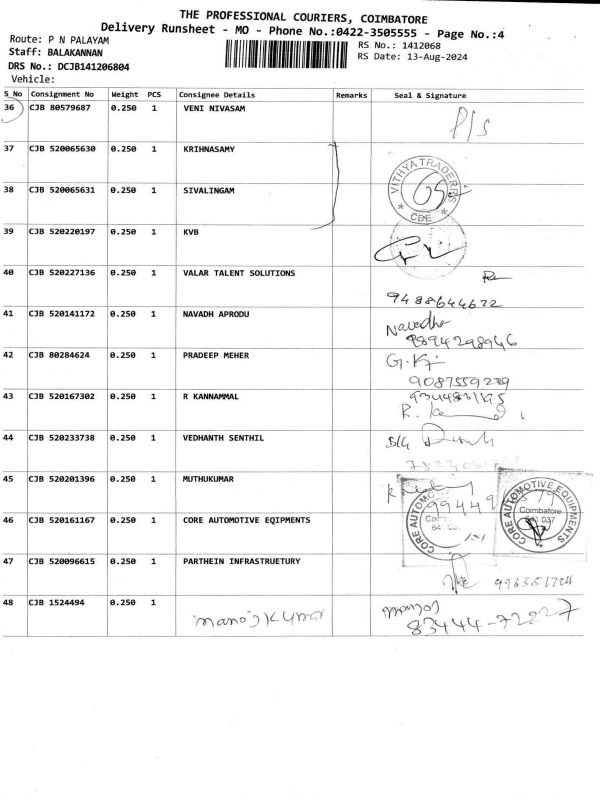 THE PROFESSIONAL COURIERS, COIMBATORE
Delivery Runsheet - MO - Phone No.:0422-3505555 - Page No.:4
Route: P N PALAYAM
Staff: BALAKANNAN
DRS No.: DCJB141206804
Vehicle:
RS No.: 1412068
RS Date: 13-Aug-2024
S_No Consignment No Weight PCS Consignee Details Remarks Seal & Signature
36 CJB 80579687 0.250 1 VENI NIVASAM P/s
37 CJB 520065630 0.250 1 KRIHNASAMY
VITHYA TRADERRS
CBE
38 CJB 520065631 0.250 1 SIVALINGAM
39 CJB 520220197 0.250 1 KVB
40 CJB 520227136 0.250 1 VALAR TALENT SOLUTIONS
9488644672
41 CJB 520141172 0.250 1 NAVADH APRODU
Navadha
9894298946
42 CJB 80284624 0.250 1 PRADEEP MEHER
9087559239
43 CJB 520167302 0.250 1 R KANNAMMAL
44 CJB 520233738 0.250 1 VEDHANTH SENTHIL
45 CJB 520201396 0.250 1 MUTHUKUMAR
99449
46 CJB 520161167 0.250 1 CORE AUTOMOTIVE EQIPMENTS
CORE AUTOMOTIVE
CORE AUTOMOTIVE EQUIPMENTS
Coimbatore
641 037
47 CJB 520096615 0.250 1 PARTHEIN INFRASTRUETURY
48 CJB 1524494 0.250 1 manojkumar
83444-72227